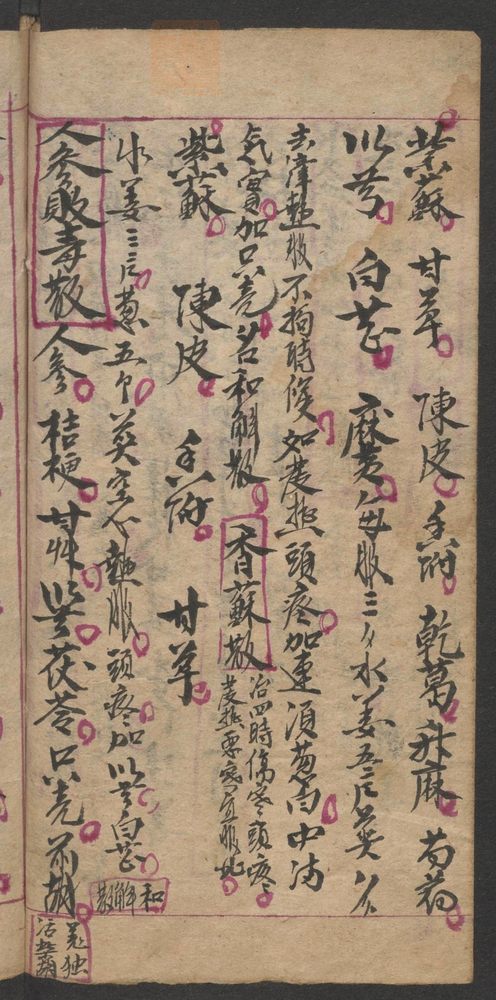 紫蘇 甘草 陳皮 香附 乾葛 升麻 芍藥
川芎 白芷 麻黃 每服三分 水 姜五片 煎八分
去滓熱服 不拘時候 如發熱頭疼 加連須葱白 中滿
氣實 加只壳 名和解散 香蘇散 治四時傷寒頭疼
發熱惡寒宜服此
紫蘇 陳皮 香附 甘草
水姜三片 葱五个 煎空心熱服 頭疼加川芎白芷
和解散
人參敗毒散 人參 桔梗 甘艸 川芎 茯苓 只壳 前胡
羌独
活柴胡